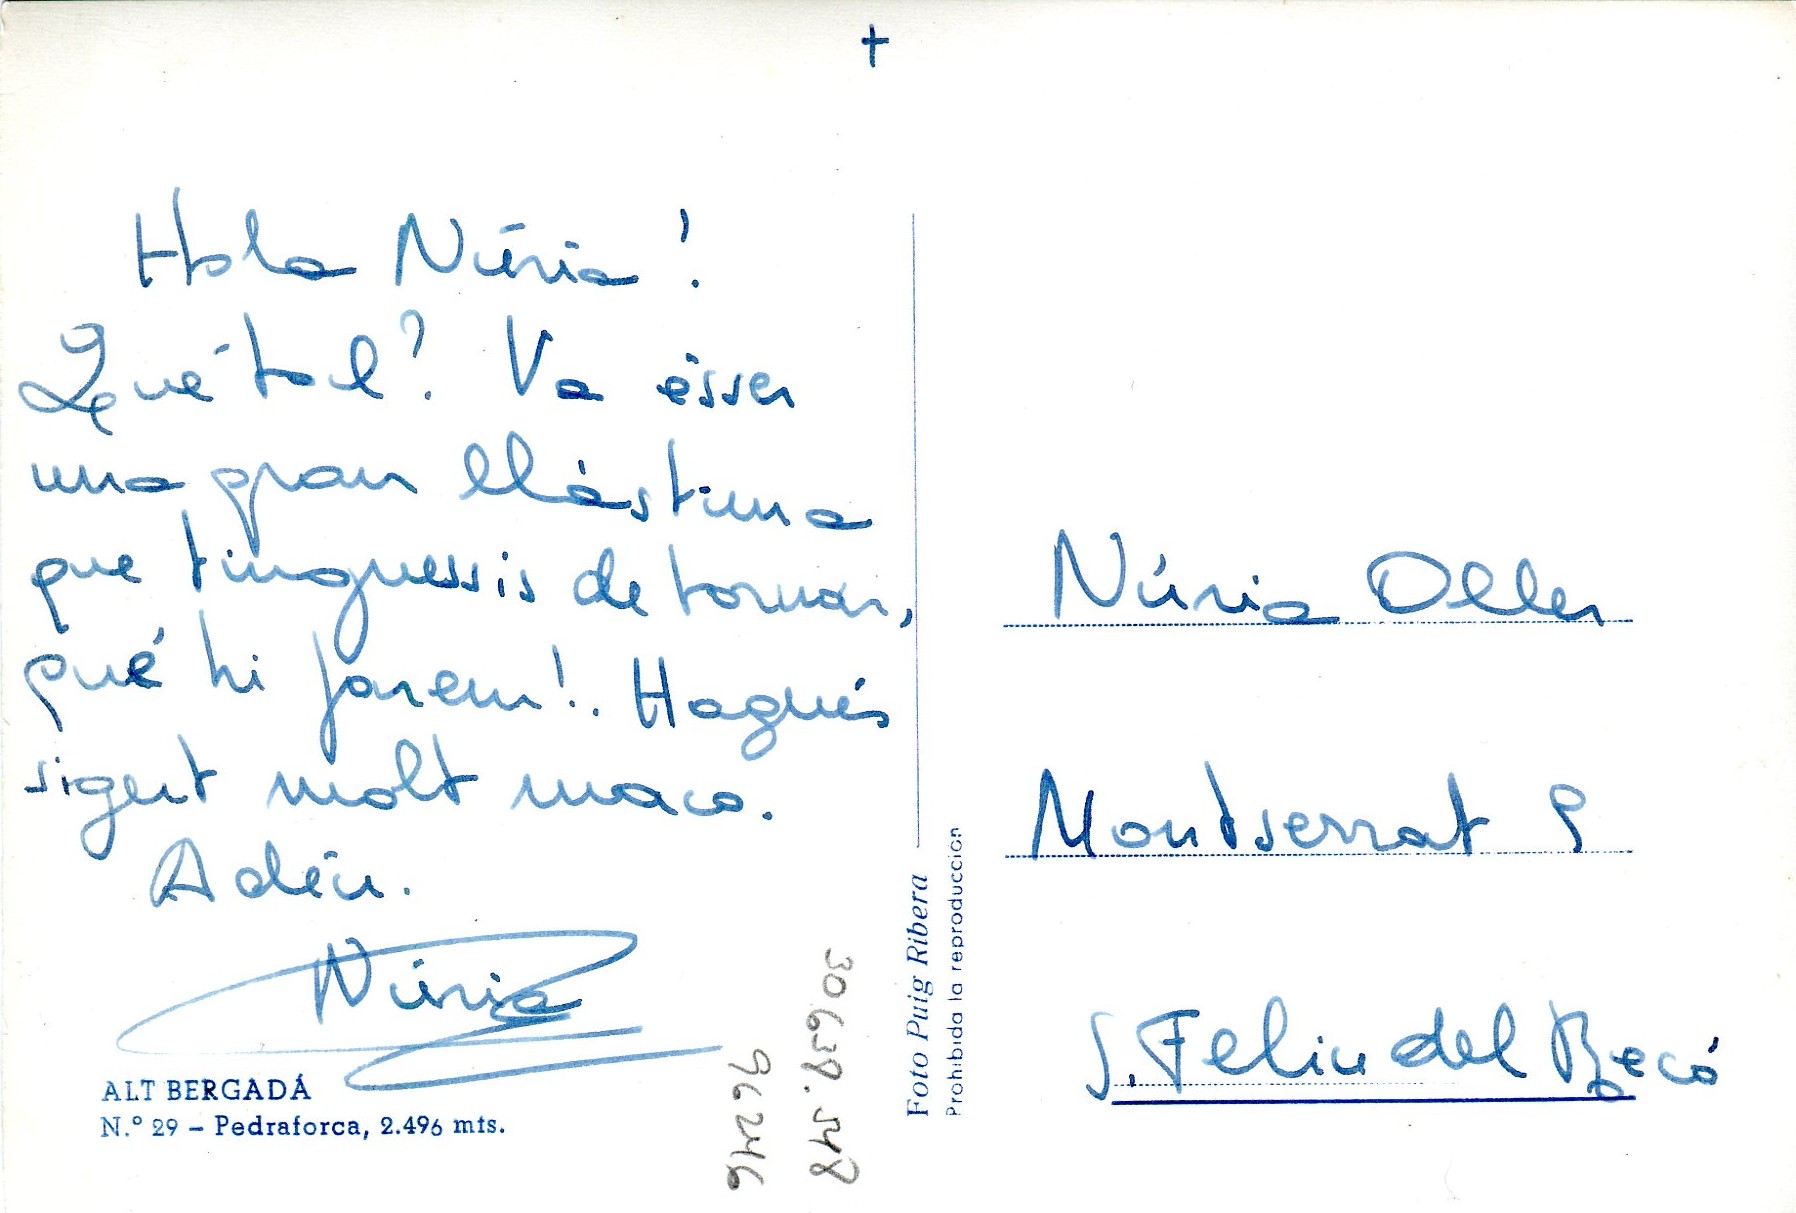 +
Hola Núria!
Qué tal? Va ésser
una gran llàstima
que tinguessis de tornar,
qué hi farem!. Hagués
sigut molt maco.
Adéu.
Núria
ALT BERGADÁ
N.º 29 – Pedraforca, 2.496 mts.
96246
30.639.548
Foto Puig Ribera
Prohibida la reproducción
Núria Oller
Montserrat 9
S. Feliu del Recó